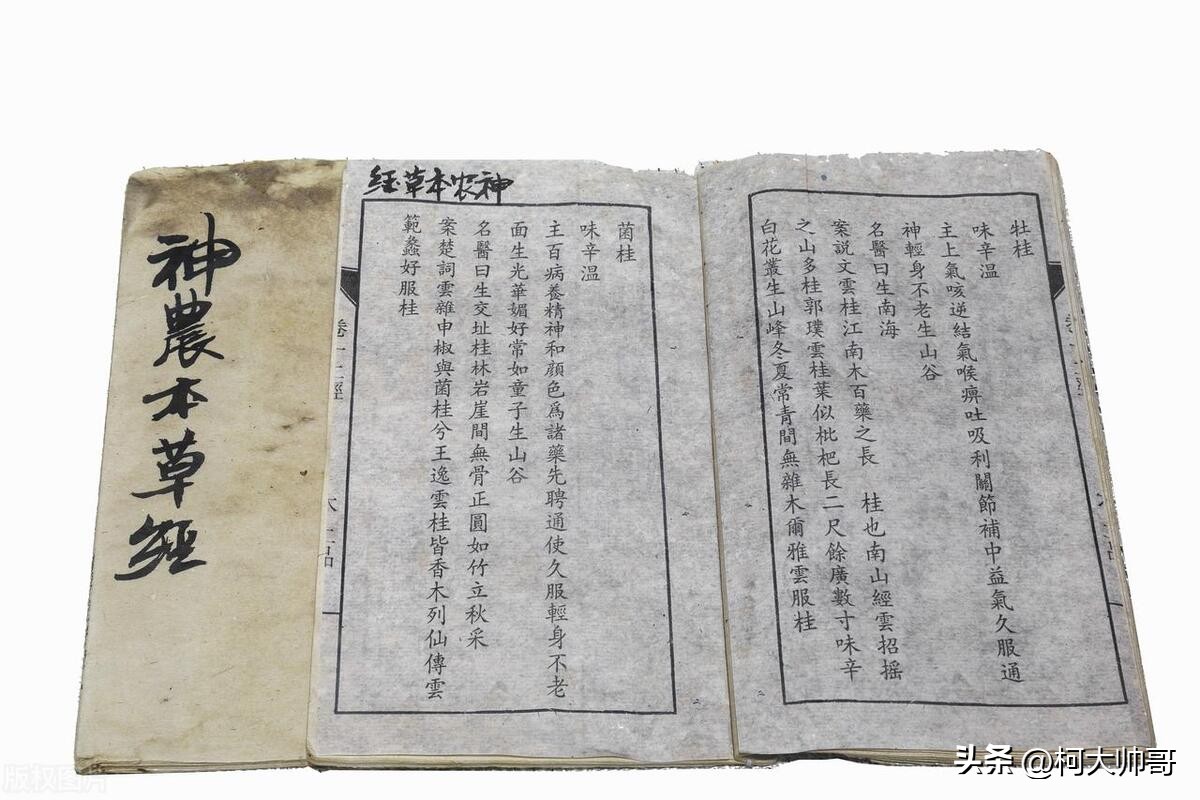 神農本草經
牡桂
味辛温
主上氣咳逆結氣喉痹吐吸利關節補中益氣久服通
神輕身不老生山谷
名醫曰生南海
案説文雲桂江南木百藥之長 桂也南山經雲招摇
之山多桂郭璞雲桂葉似枇杷長二尺餘廣數寸味辛
白花叢生山峰冬夏常青間無雜木爾雅雲服桂
神农本草经
菌桂
味辛温
主百病養精神和顔色爲諸藥先聘通使久服輕身不老
面生光華媚好常如童子生山谷
名醫曰生交址桂林岩崖間無骨正圓如竹立秋采
案楚詞雲雜申椒與菌桂兮王逸雲桂皆香木列仙傳雲
範蠡好服桂
卷十二經
木上品
头条 @柯大帅哥
版权图片